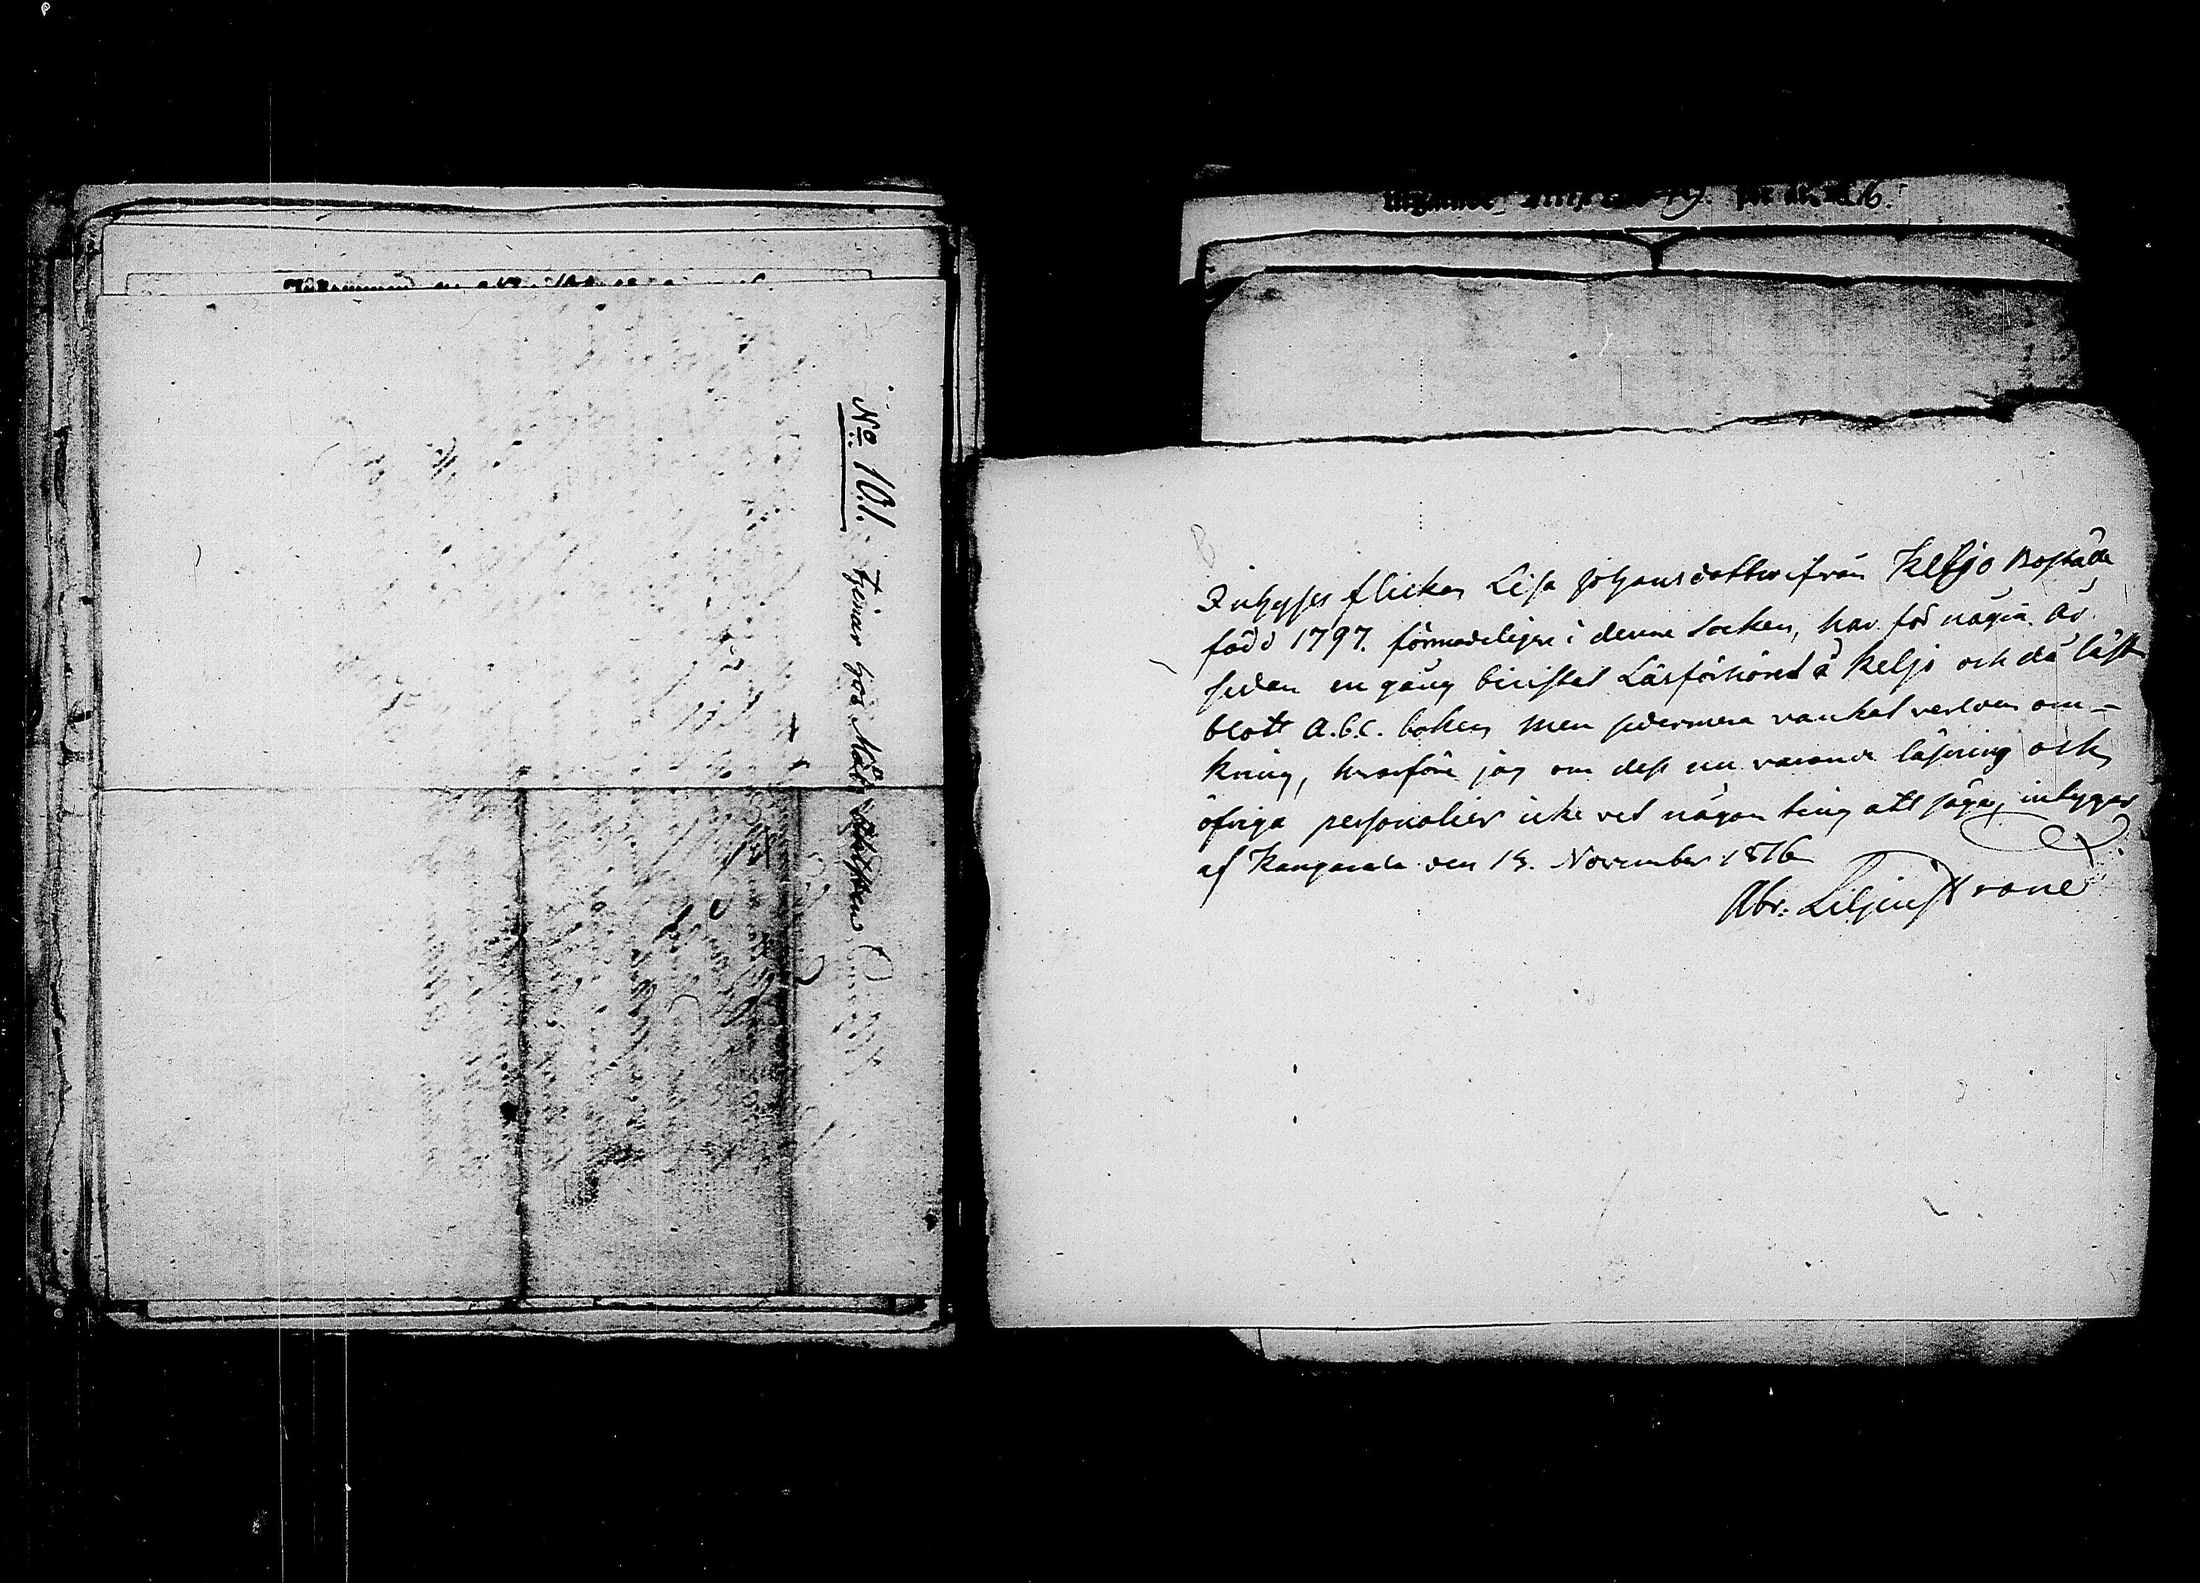 No. 101. tjenar hos Måb.
Inhyses flickan Lisa Johansdotter ifrån Keljo Boställe
född 1797. förmodeligen i denne Socken, har för några år
sedan en gång bevistat Läsförhöret å Keljo och då läst
blott A.b.c. boken men sedermera vankat verlden om-
kring, hvarföre jag om dess nu varande läsning och
öfriga personalier icke vet någon ting att säga, intygar
af Kangasala den 13. November 1816
Abr. Liljenstrand